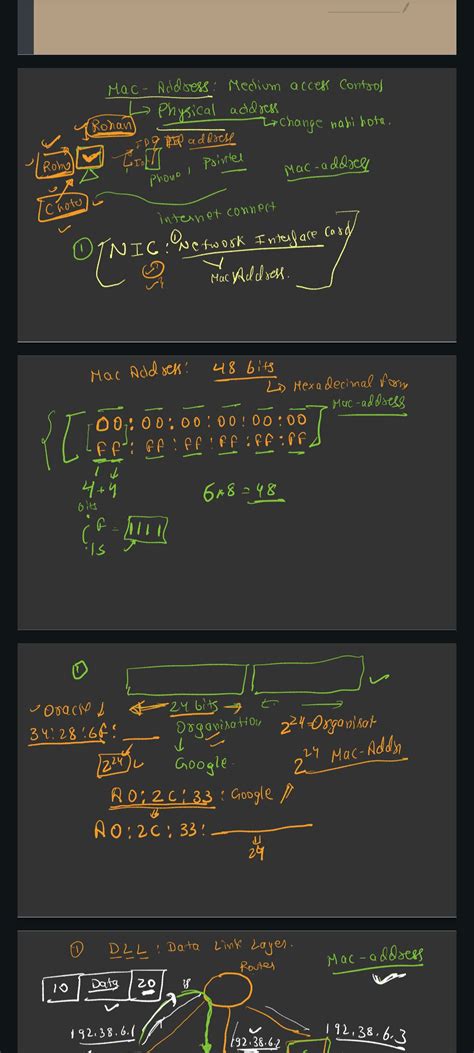 Mac-Address: Medium access Control
Physical address
change nahi hota.
Rohan
address
Rohu
Phone, Printer
Mac-address
Chotu
internet connect
① NIC: ① Network Interface Card
Mac Address.
Mac Address: 48 bits
Hexadecimal form
Mac-address
00:00:00:00:00:00
FF:FF:FF:FF:FF:FF
4+4
bits
6*8=48
F = 1111
15
①
Oracle
24 bits
34:28:6F:
Organisation
2^24=Organisat
2^24
Google
2^24 Mac-Addr
A0:2C:33: Google
A0:2C:33:
24
① DLL: Data Link Layer.
Router
Mac-address
10 Data 20
192.38.6.1
192.38.6.2
192.38.6.3